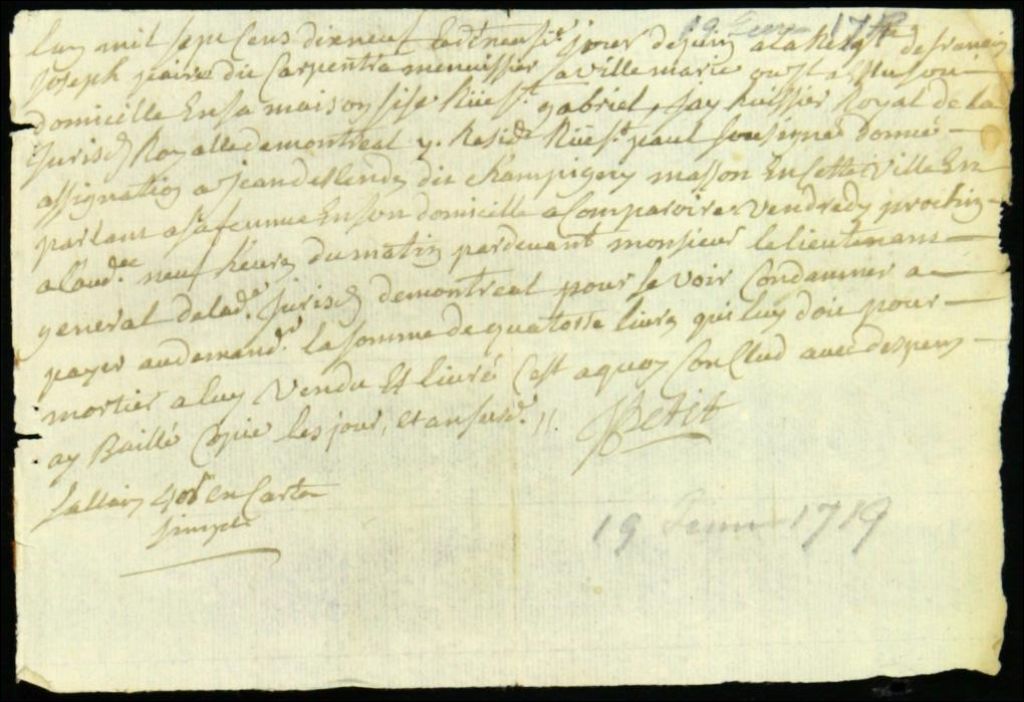 19 1719
Lan mil sept Cens dixneuf Le dixneufe. jour dejuin ala Req.te defrancois
Joseph dit Carpentra menuissier aVillemarie ou Il a Elu son
domicille Ensa maison sise Rüe St. gabriel, Jay huissier Royal de la
Jurisd. Royalle demontreal y Resid.t Rüe St. paul sousigné donné
assignation a Jean dit Champigny masson En Cette Ville En
parlant asa femme Enson domicille a Comparoire Vendredy prochin
alaud.ce neuf heures dumatin pardevant monsieur le lieutenant
general delad.e Jurisd. demontreal pour se Voir Condamner a
payer audemand.r la somme de quatorse livres quil luy doit pour
mortier a luy Vendu Et livré C'est aquoy Conclud avec despens
ay Baillé Copie les jour, et an susd. //. Petit
en Carta
19 1719